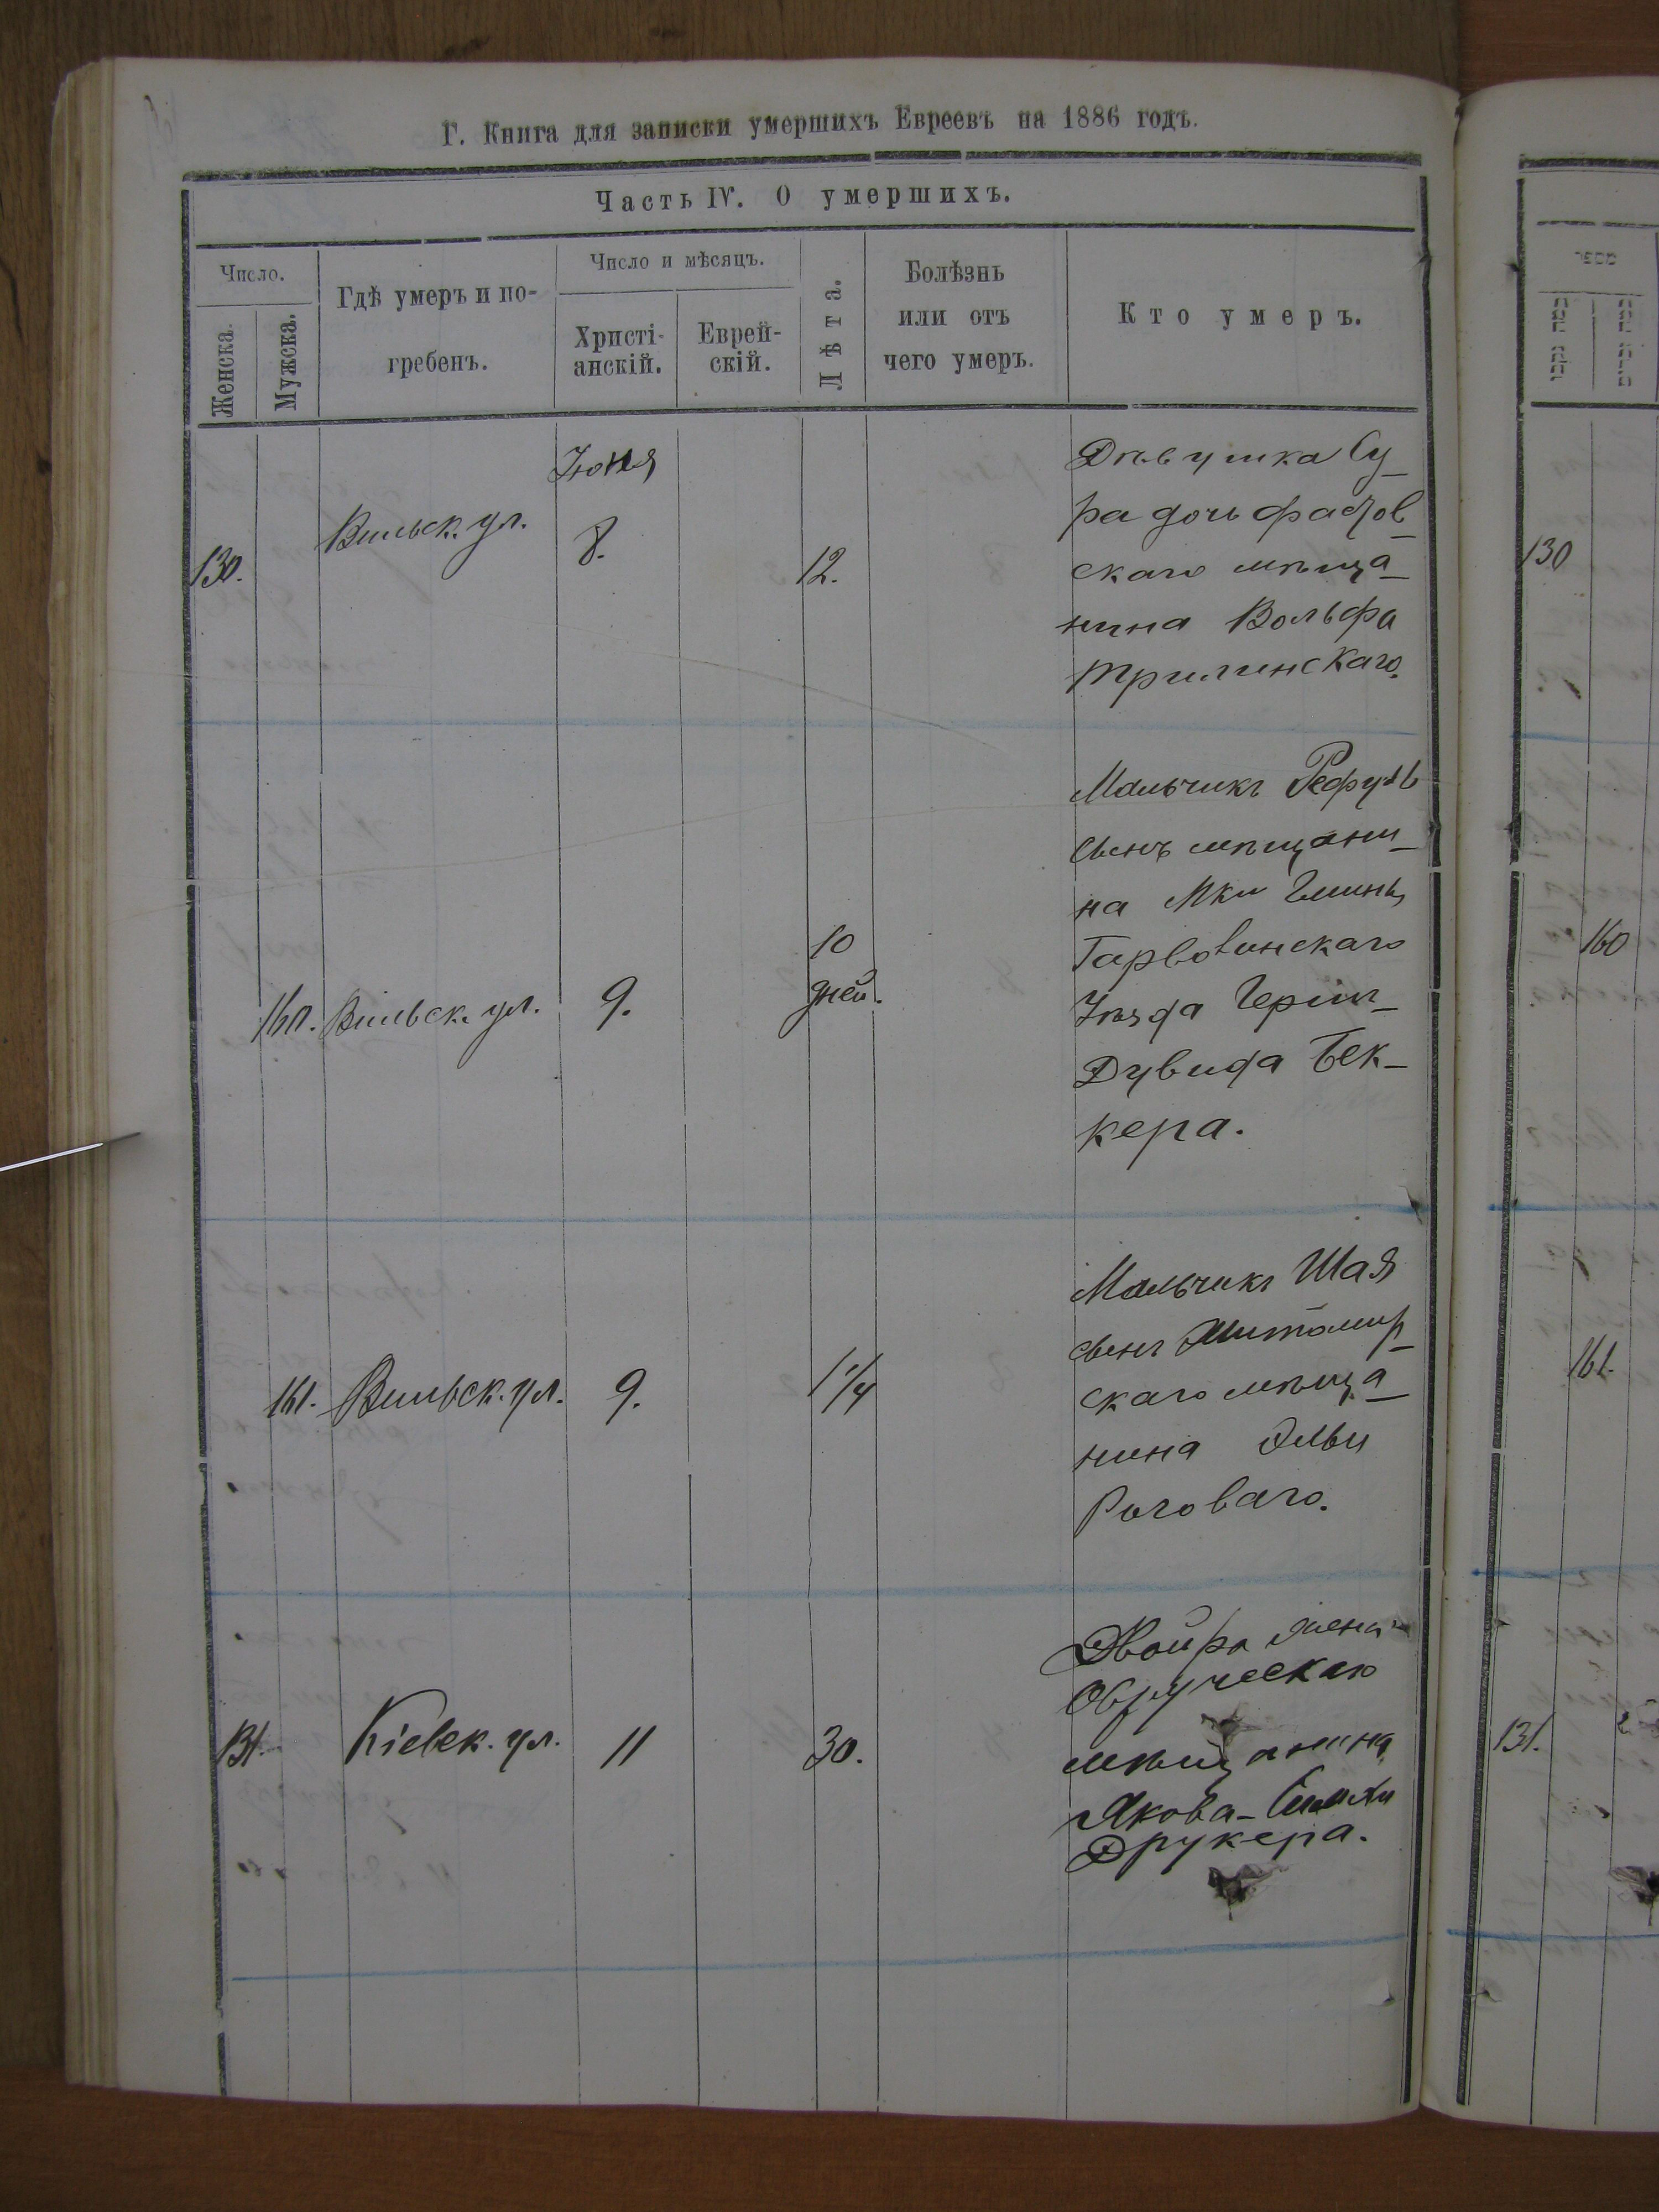 Г. Книга для записки умершихъ Евреевъ на 1886 годъ.
Часть IV. О умершихъ.
Число.
Женска.
Мужска.
Гдѣ умеръ и по-
гребенъ.
Число и мѣсяцъ.
Христі-
анскій.
Еврей-
скій.
Лѣта.
Болѣзнь
или отъ
чего умеръ.
Кто умеръ.
Іюня
130.
Вильск. ул.
8.
12.
Дѣвушка Су-
ра дочь
скаго мѣща-
нина Вольфа
Трилинскаго.
160.
Вильск. ул.
9.
10
дней.
Мальчикъ Рефуль
сынъ мѣщани-
на
Гарволинскаго
Уѣзда Герш-
Дувида Бек-
кера.
161.
Вильск. ул.
9.
1 1/4
Мальчикъ Шая
сынъ Житомир-
скаго мѣща-
нина Эльи
Роговаго.
131.
Кіевск. ул.
11
30.
Двойра жена
Овручскаго
мѣщанина
Якова-Симхи
Друкера.
130
160
161.
131.